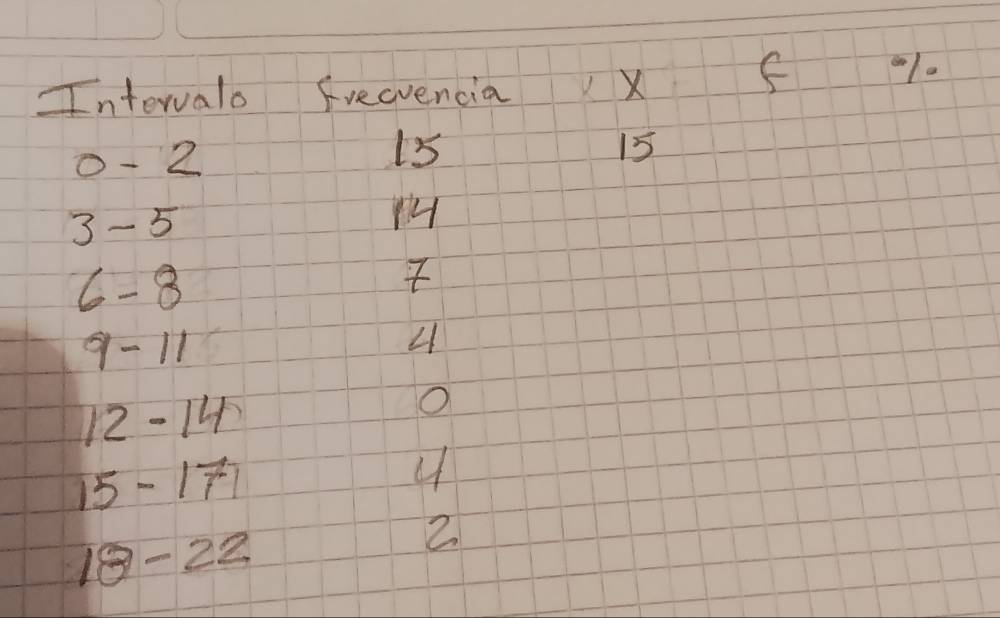 Intervalo frecuencia X f %
0-2 15 15
3-5 14
6-8 7
9-11 4
12-14 0
15-17 4
18-22 2